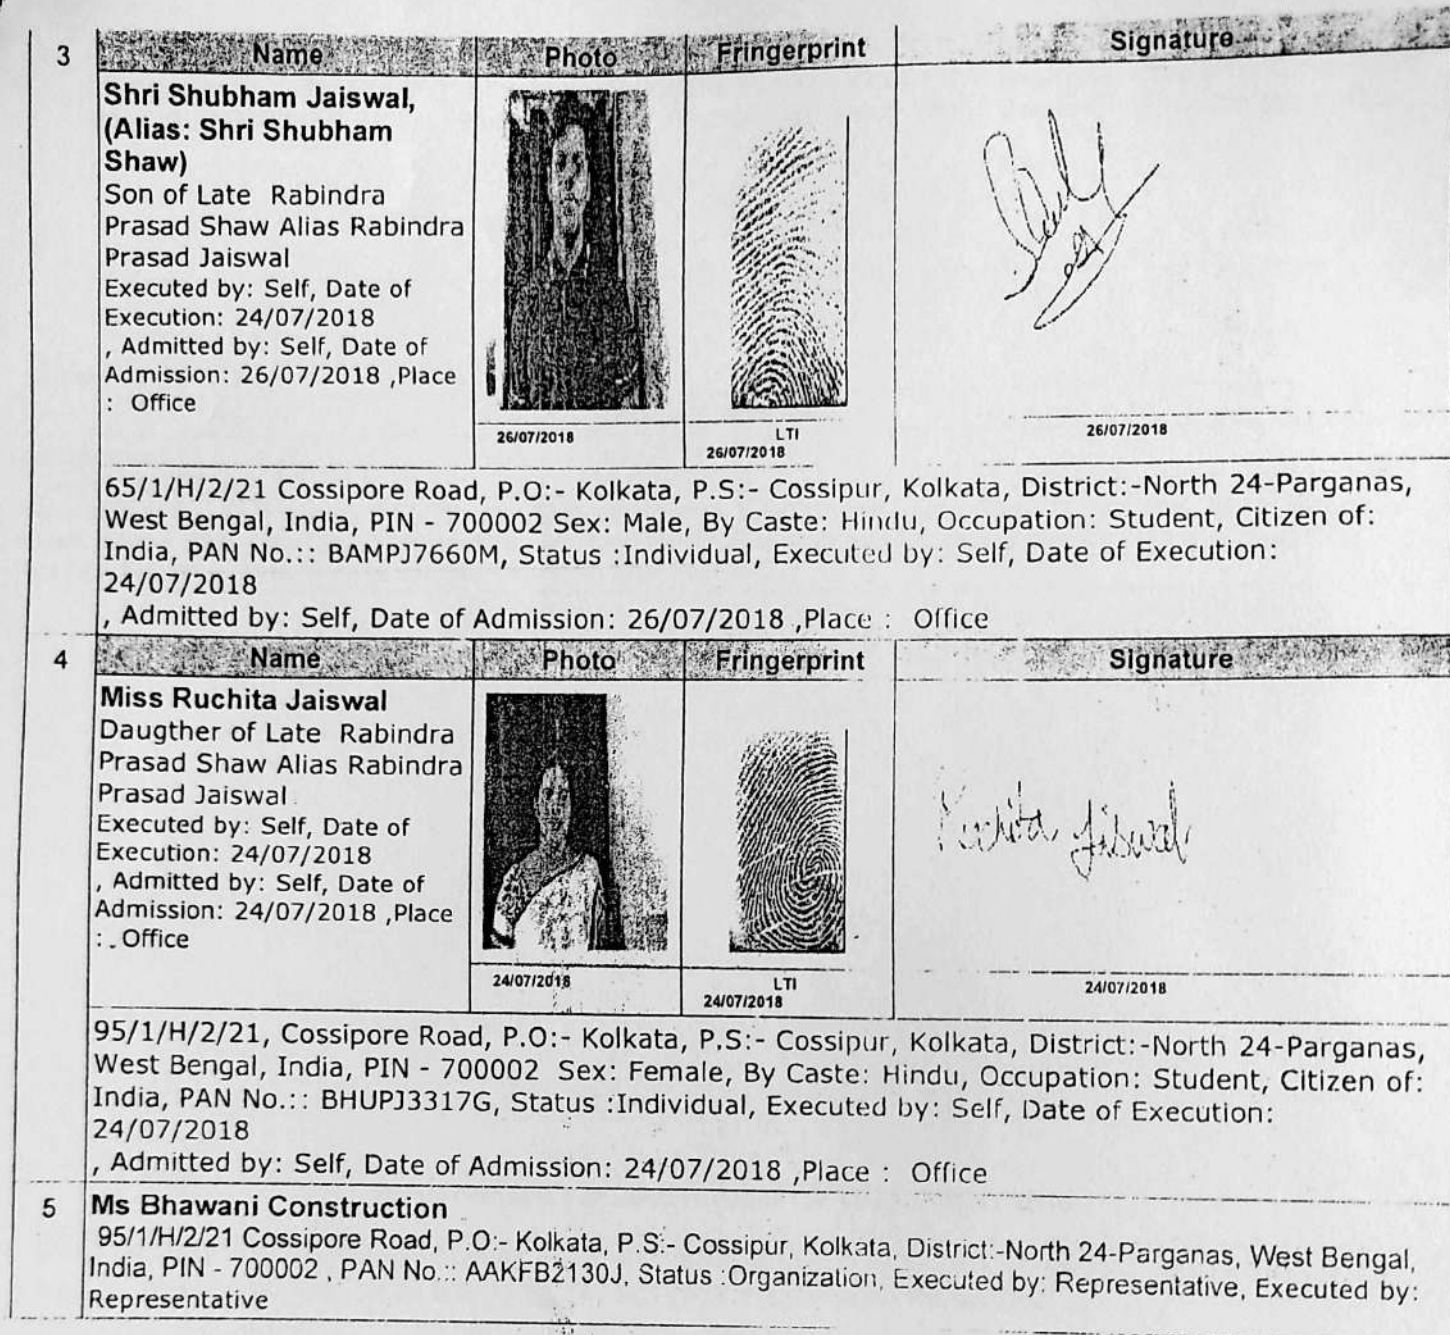 3 Name Photo Fringerprint Signature
Shri Shubham Jaiswal,
(Alias: Shri Shubham
Shaw)
Son of Late Rabindra
Prasad Shaw Alias Rabindra
Prasad Jaiswal
Executed by: Self, Date of
Execution: 24/07/2018
, Admitted by: Self, Date of
Admission: 26/07/2018 ,Place
: Office
26/07/2018
LTI
26/07/2018
26/07/2018
65/1/H/2/21 Cossipore Road, P.O:- Kolkata, P.S:- Cossipur, Kolkata, District:-North 24-Parganas,
West Bengal, India, PIN - 700002 Sex: Male, By Caste: Hindu, Occupation: Student, Citizen of:
India, PAN No.:: BAMPJ7660M, Status :Individual, Executed by: Self, Date of Execution:
24/07/2018
, Admitted by: Self, Date of Admission: 26/07/2018 ,Place : Office
4 Name Photo Fringerprint Signature
Miss Ruchita Jaiswal
Daugther of Late Rabindra
Prasad Shaw Alias Rabindra
Prasad Jaiswal
Executed by: Self, Date of
Execution: 24/07/2018
, Admitted by: Self, Date of
Admission: 24/07/2018 ,Place
: . Office
Ruchita Jaiswal
24/07/2018
LTI
24/07/2018
24/07/2018
95/1/H/2/21, Cossipore Road, P.O:- Kolkata, P.S:- Cossipur, Kolkata, District:-North 24-Parganas,
West Bengal, India, PIN - 700002 Sex: Female, By Caste: Hindu, Occupation: Student, Citizen of:
India, PAN No.:: BHUPJ3317G, Status :Individual, Executed by: Self, Date of Execution:
24/07/2018
, Admitted by: Self, Date of Admission: 24/07/2018 ,Place : Office
5 Ms Bhawani Construction
95/1/H/2/21 Cossipore Road, P.O:- Kolkata, P.S:- Cossipur, Kolkata, District:-North 24-Parganas, West Bengal,
India, PIN - 700002 , PAN No.:: AAKFB2130J, Status :Organization, Executed by: Representative, Executed by:
Representative